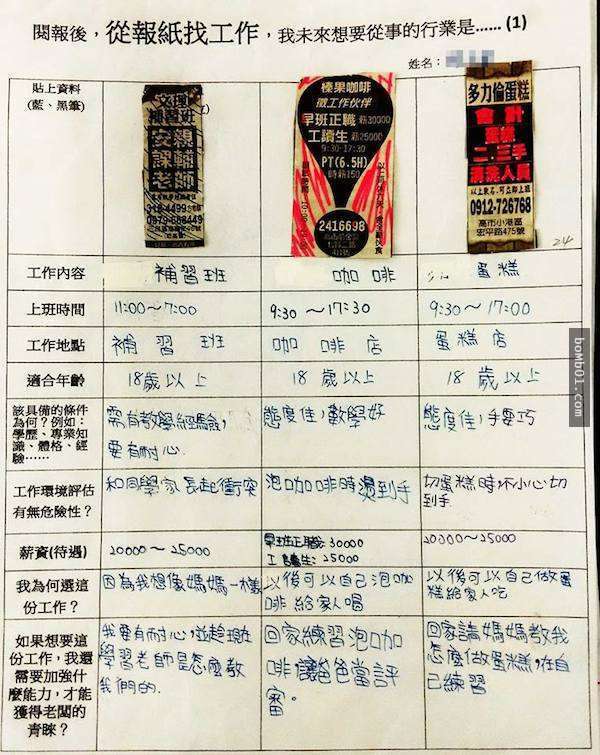 閱報後，從報紙找工作，我未來想要從事的行業是…… (1)
姓名：
貼上資料
(藍、黑筆)
文理
補習班
安親
課輔
老師
榛果咖啡
徵工作伙伴
早班正職 薪30000
工讀生 薪25000
9:30-17:30
PT(6.5H)
時薪150
2416698
多力倫蛋糕
會計
二.三手
清洗人員
以上數名.可立即上班
0912-726768
高市小港區
宏平路475號
24
工作內容 補習班 咖啡 蛋糕
上班時間 11:00～7:00 9:30～17:30 9:30～17:00
工作地點 補習班 咖啡店 蛋糕店
適合年齡 18歲以上 18歲以上 18歲以上
該具備的條件
為何？例如：
學歷、專業知
識、體格、經
驗……
需有教學經驗，
要有耐心.
態度佳，數學好
態度佳，手要巧
工作環境評估
有無危險性？
和同學家長起衝突
泡咖啡時燙到手
切蛋糕時不小心切
到手.
薪資(待遇)
20000～25000
早班正職: 30000
工讀生: 25000
20000～25000
我為何選這
份工作？
因為我想像媽媽一樣
以後可以自己泡咖
啡給家人喝
以後可以自己做蛋
糕給家人吃
如果想要這
份工作，我還
需要加強什
麼能力，才能
獲得老闆的
青睞？
我要有耐心，並趁現在
學習老師是怎麼教
我們的.
回家練習泡咖
啡讓爸爸當評
審。
回家請媽媽教我
怎麼做蛋糕，在自
己練習
bomb01.com